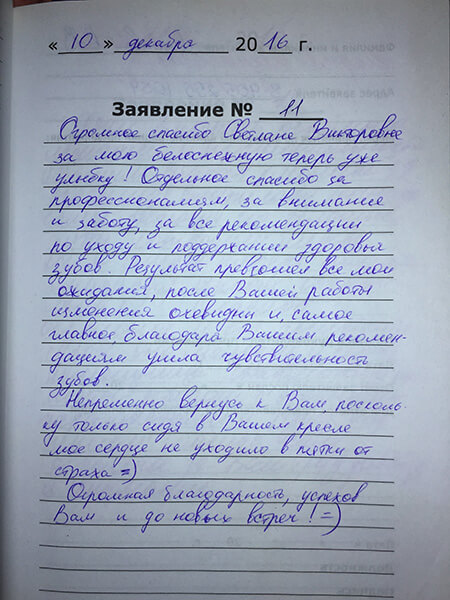 « 10 » декабря 2016 г.
Заявление № 11
Огромное спасибо Светлане Викторовне
за мою белоснежную теперь уже
улыбку! Отдельное спасибо за
профессионализм, за внимание
и заботу, за все рекомендации
по уходу и поддержании здоровья
зубов. Результат превзошел все мои
ожидания, после Вашей работы
изменения очевидны и, самое
главное, благодаря Вашим рекомен-
дациям ушла чувствительность
зубов.
Непременно вернусь к Вам, посколь-
ку только сидя в Вашем кресле
мое сердце не уходило в пятки от
страха =)
Огромная благодарность, успехов
Вам и до новых встреч! =)